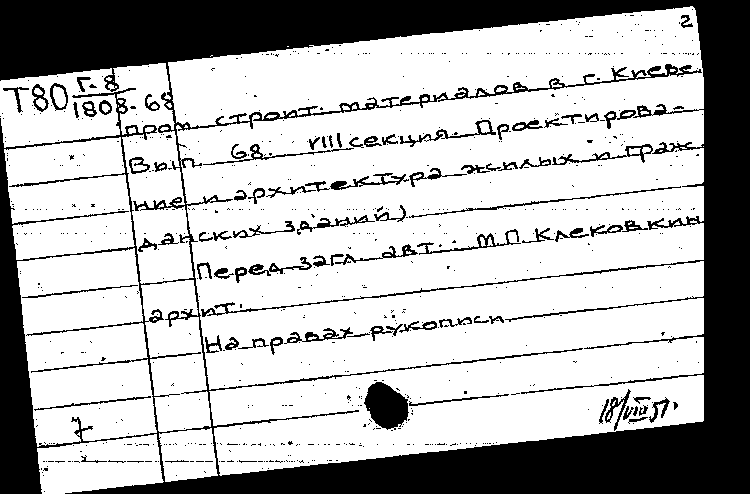 2
Т80 Г-8/1808-68
пром. строит. материалов в г. Киеве.
Вып. 68. VIII секция. Проектирова-
ние и архитектура жилых и граж
данских зданий)
Перед загл. авт.: М.П. Клековкин
архит.
На правах рукописи.
7
18/VIII 51.